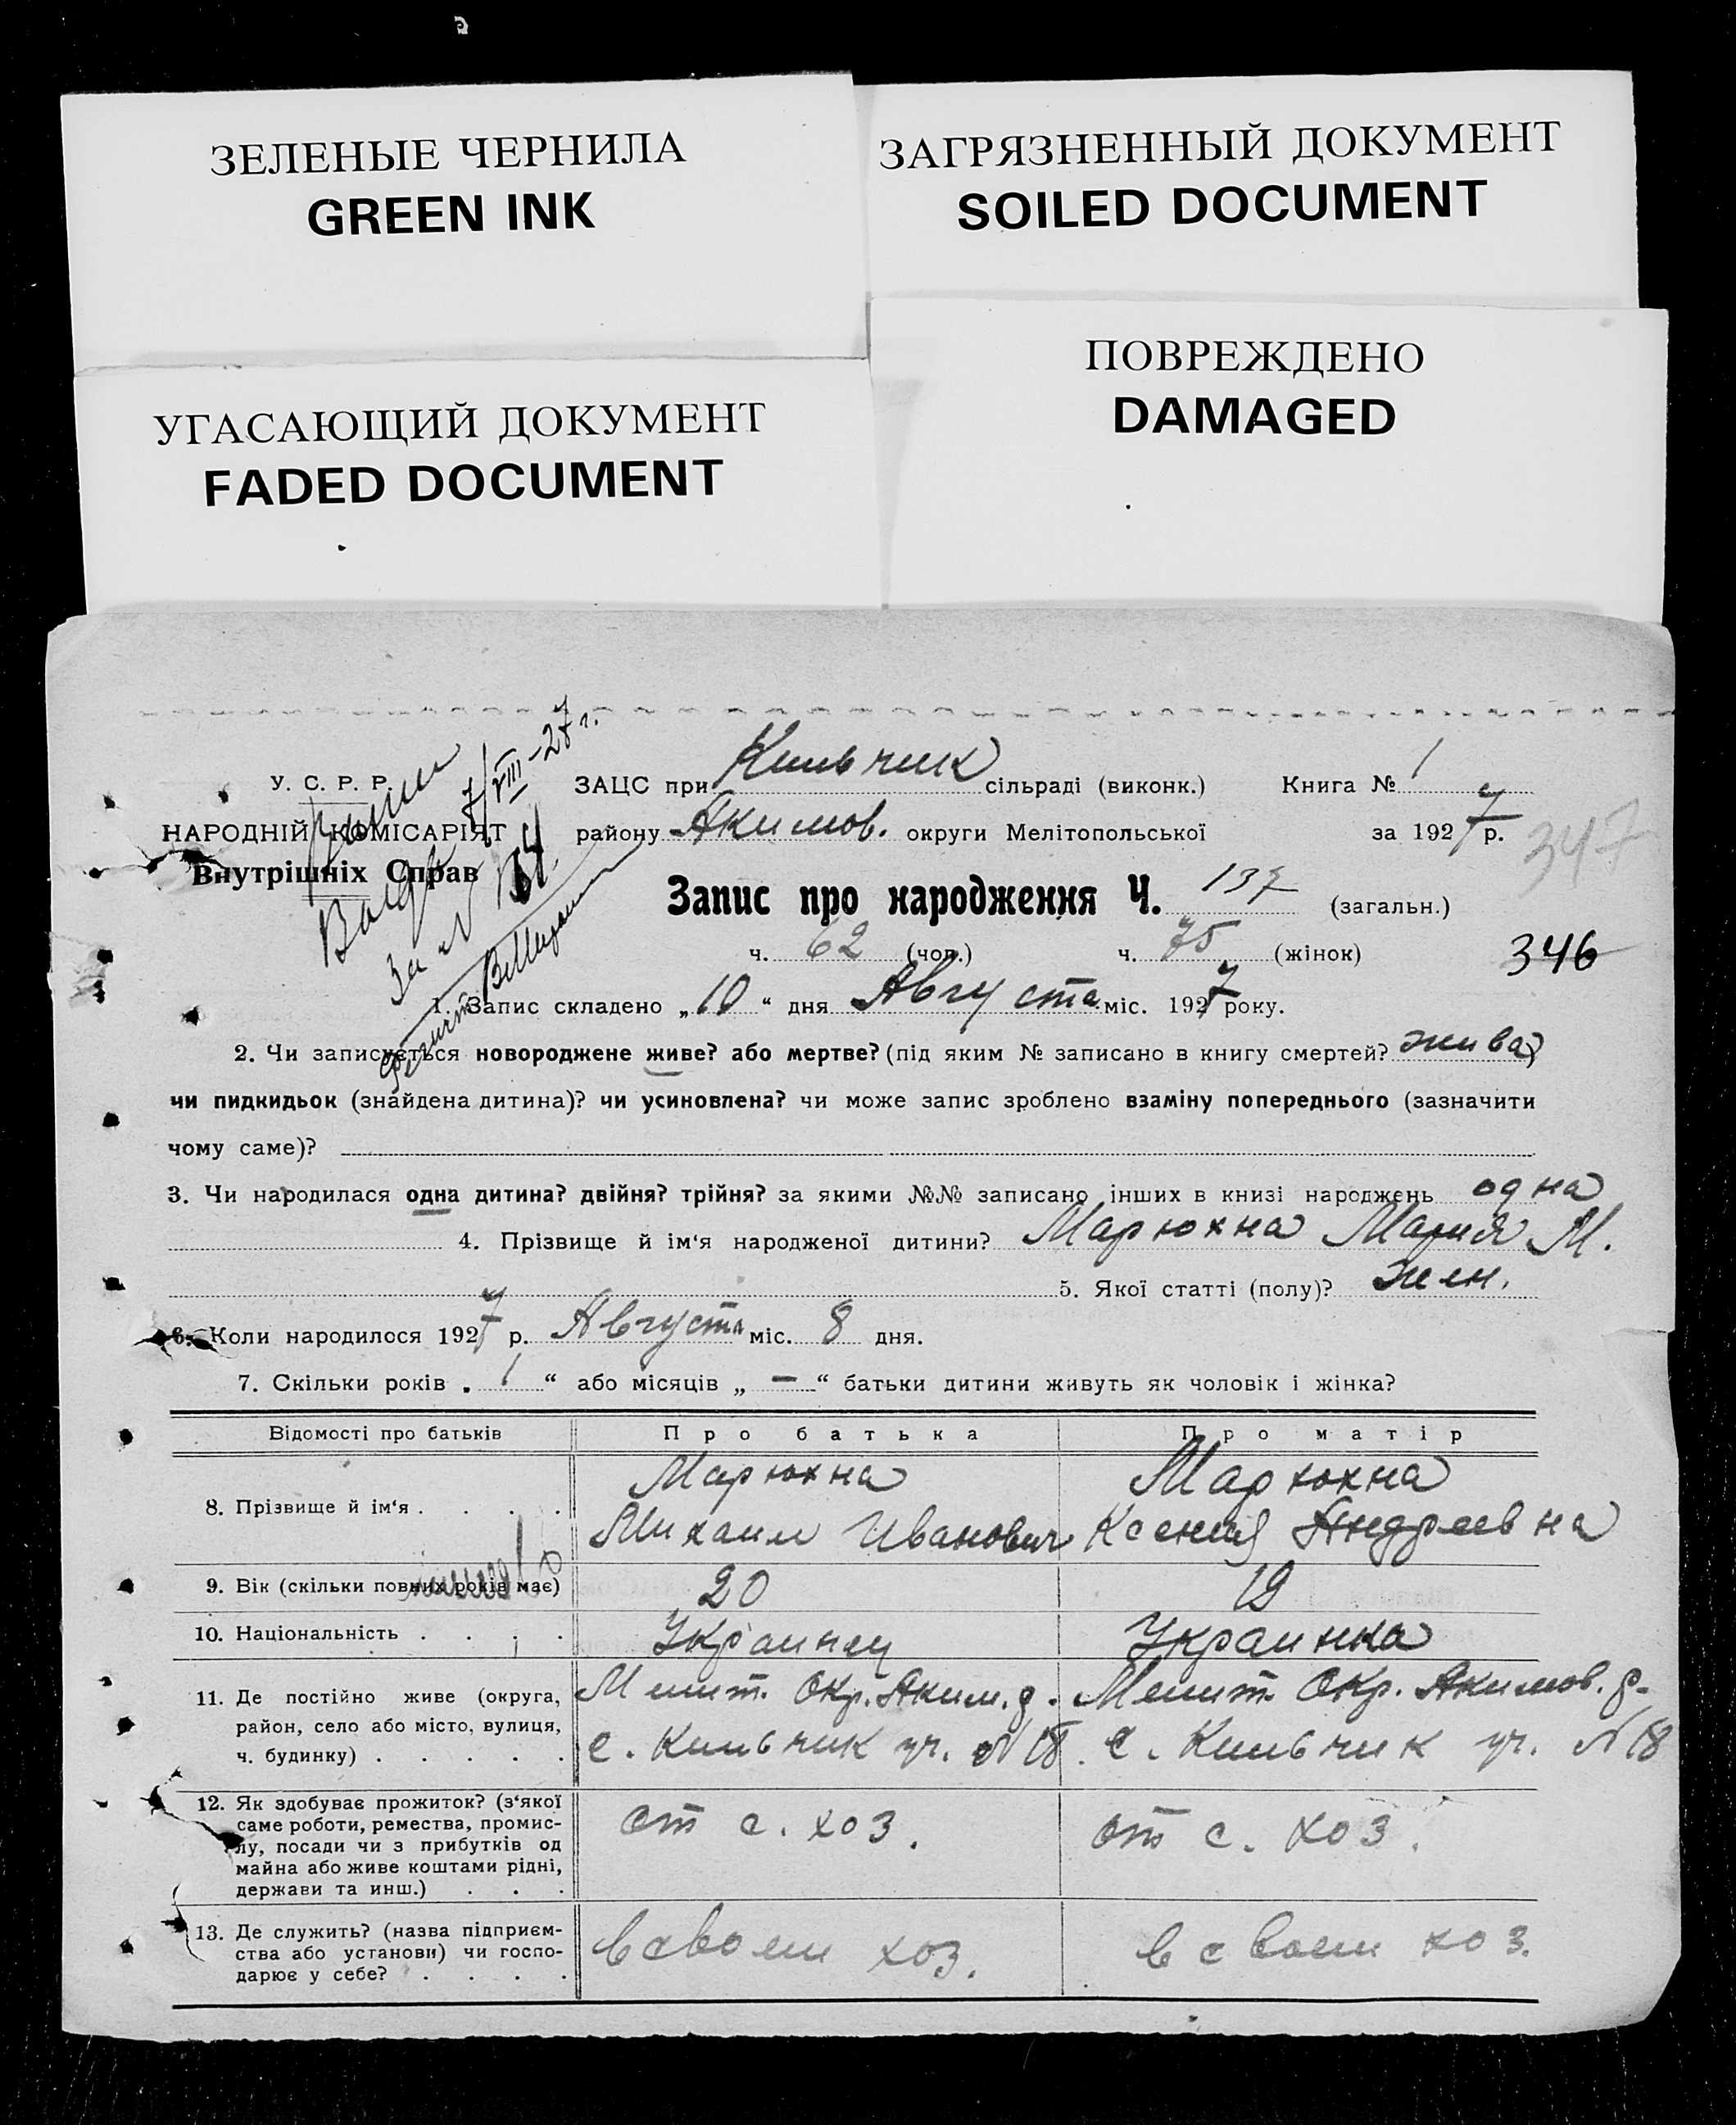 ЗЕЛЕНЫЕ ЧЕРНИЛА
GREEN INK
ЗАГРЯЗНЕННЫЙ ДОКУМЕНТ
SOILED DOCUMENT
УГАСАЮЩИЙ ДОКУМЕНТ
FADED DOCUMENT
ПОВРЕЖДЕНО
DAMAGED
У. С. Р. Р.
НАРОДНІЙ КОМІСАРІЯТ
Внутрішніх Справ
7/VIII-27 г.
За №
ЗАЦС при Кильчик сільраді (виконк.) Книга № 1
району Акимов. округи Мелітопольської за 1927 р.
347
Запис про народження Ч. 137 (загальн.)
ч. 62 (чол.) ч. 75 (жінок)
346
1. Запис складено „10“ дня Августа міс. 1927 року.
2. Чи записується новороджене живе? або мертве? (під яким № записано в книгу смертей? жива)
чи пидкидьок (знайдена дитина)? чи усиновлена? чи може запис зроблено взаміну попереднього (зазначити
чому саме)?
3. Чи народилася одна дитина? двійня? трійня? за якими №№ записано інших в книзі народжень одна
4. Прізвище й ім‘я народженої дитини? Марюхна Мария М.
5. Якої статті (полу)? жен.
6. Коли народилося 1927 р. Августа міс. 8 дня.
7. Скільки років „ 1 “ або місяців „ — “ батьки дитини живуть як чоловік і жінка?
Відомості про батьків Про батька Про матір
8. Прізвище й ім‘я . . . . Марюхна Михаил Иванович Марюхна Ксения Андреевна
9. Вік (скільки повних років має) 20 19
10. Національність . . . . Украинец Украинка
11. Де постійно живе (округа, Мелит. Окр. Аким. р. Мелит. Окр. Акимов. р.
район, село або місто, вулиця,
ч. будинку) . . . . . с. Кильчик уч. №18. с. Кильчик уч. №18
12. Як здобуває прожиток? (з‘якої
саме роботи, ремества, промис- от с. хоз. от с. хоз.
лу, посади чи з прибутків од
майна або живе коштами рідні,
держави та инш.) . . .
13. Де служить? (назва підприєм-
ства або установи) чи госпо- в своем хоз. в своем хоз.
дарює у себе? . . . .